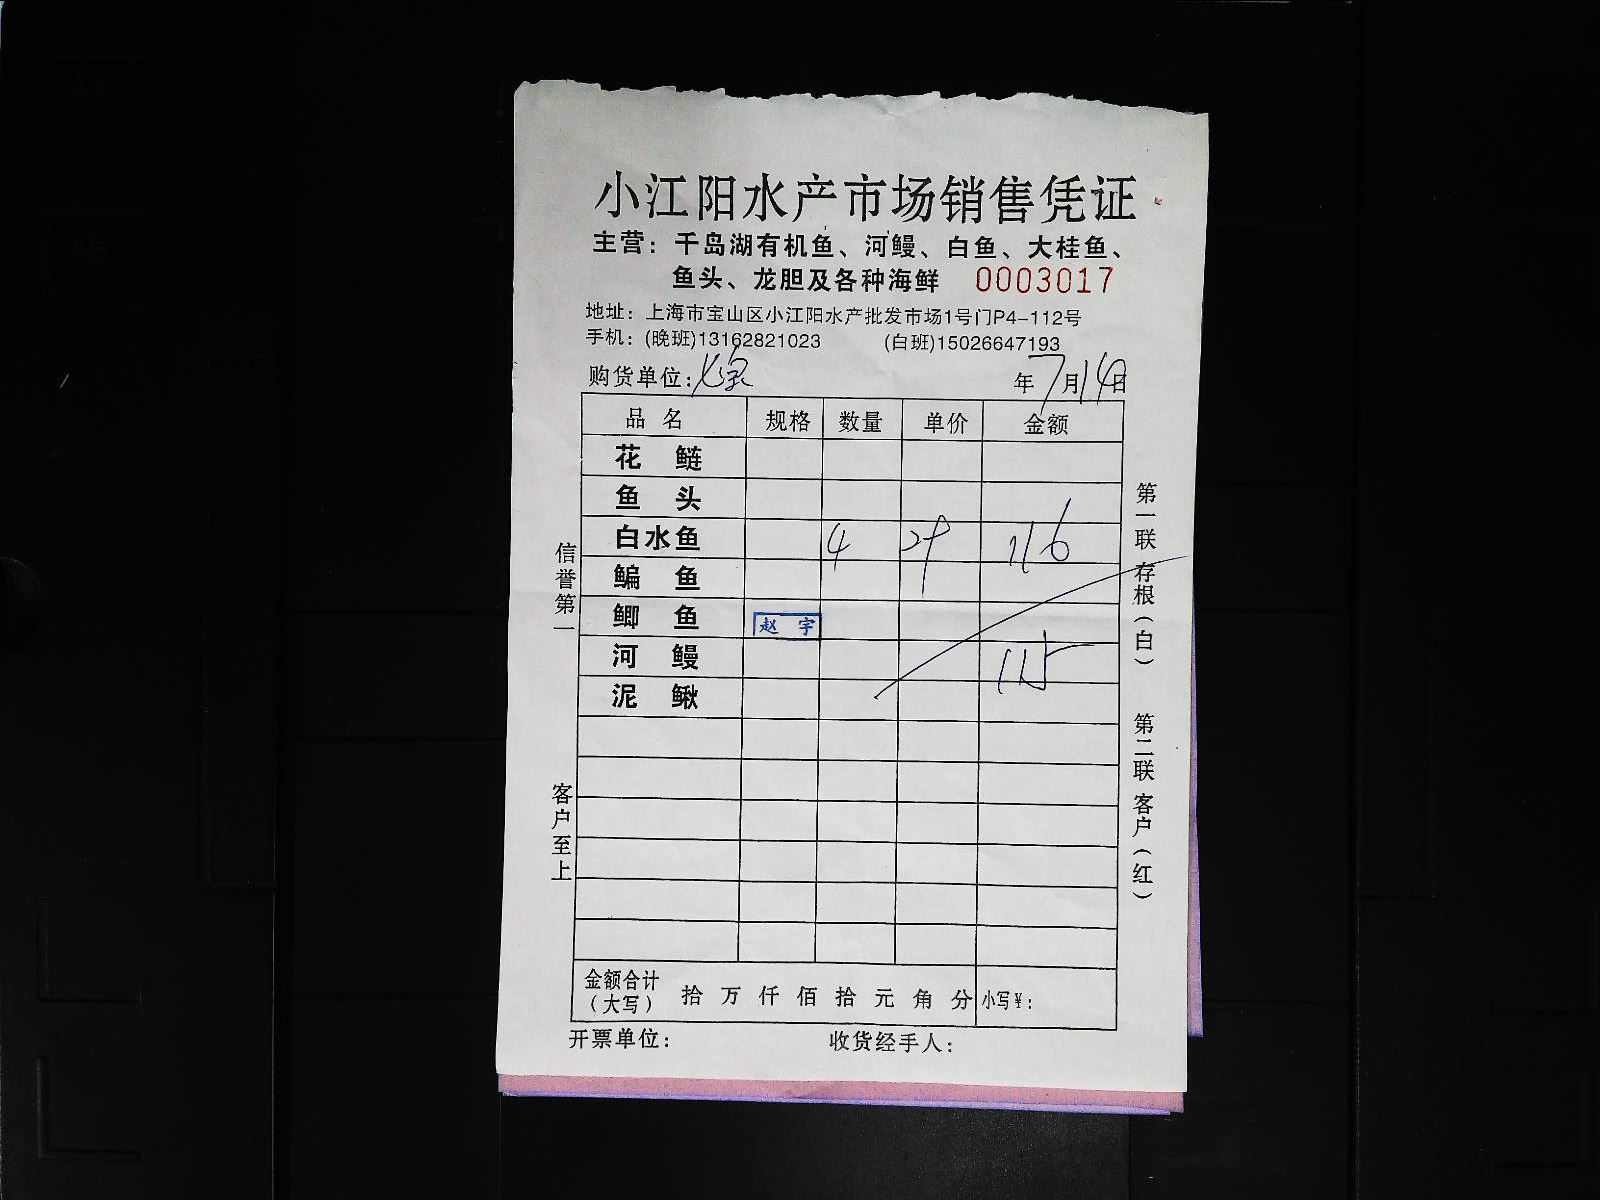 小江阳水产市场销售凭证
主营：千岛湖有机鱼、河鳗、白鱼、大桂鱼、
鱼头、龙胆及各种海鲜 0003017
地址：上海市宝山区小江阳水产批发市场1号门P4-112号
手机：(晚班)13162821023 (白班)15026647193
购货单位： 年7月14日
品名 规格 数量 单价 金额
花鲢
鱼头
白水鱼 4 29 116
鳊鱼
鲫鱼 赵宇
河鳗 115
泥鳅
金额合计（大写） 拾万仟佰拾元角分 小写￥：
开票单位： 收货经手人：
信誉第一
客户至上
第一联 存根（白）
第二联 客户（红）